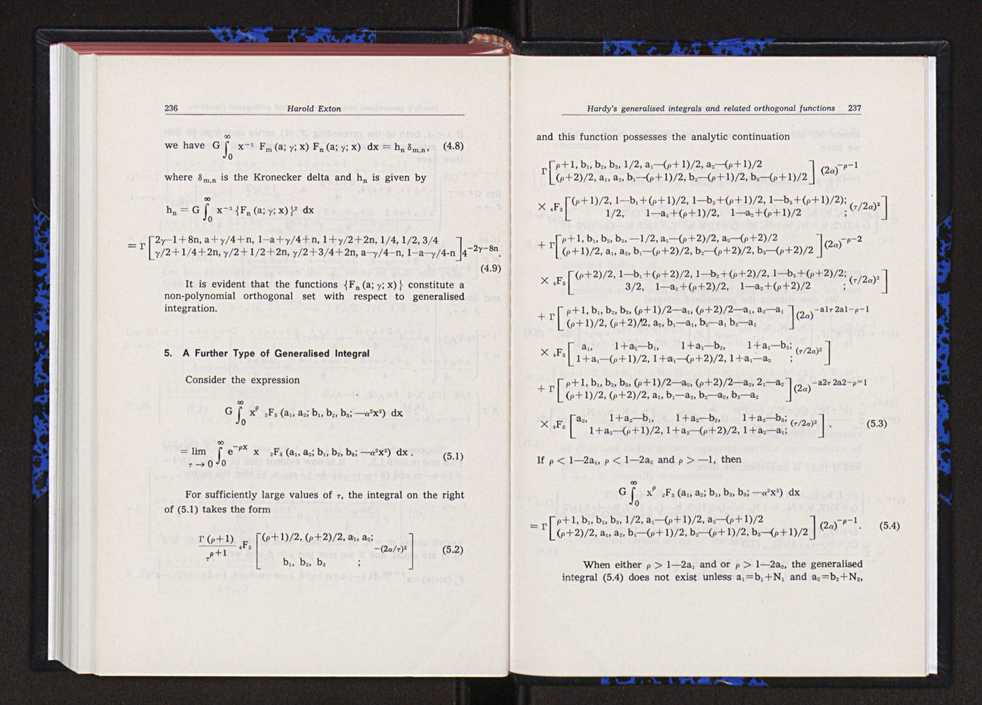 236 Harold Exton
we have G ∫₀^∞ x⁻¹ Fₘ (a; γ; x) Fₙ (a; γ; x) dx = hₙ δₘ,ₙ, (4.8)
where δₘ,ₙ is the Kronecker delta and hₙ is given by
hₙ = G ∫₀^∞ x⁻¹ {Fₙ (a; γ; x)}² dx
= Γ [2γ—1+8n, a+γ/4+n, 1—a+γ/4+n, 1+γ/2+2n, 1/4, 1/2, 3/4
γ/2+1/4+2n, γ/2+1/2+2n, γ/2+3/4+2n, a—γ/4—n, 1—a—γ/4-n] 4^(−2γ−8n).
(4.9)
It is evident that the functions {Fₙ (a; γ; x)} constitute a
non-polynomial orthogonal set with respect to generalised
integration.
5. A Further Type of Generalised Integral
Consider the expression
G ∫₀^∞ x^ρ ₂F₃ (a₁, a₂; b₁, b₂, b₃; —α²x²) dx
= lim τ → 0 ∫₀^∞ e^(−ρx) x ₂F₃ (a₁, a₂; b₁, b₂, b₃; —α²x²) dx . (5.1)
For sufficiently large values of τ, the integral on the right
of (5.1) takes the form
Γ (ρ+1)
τ^(ρ+1) ₄F₃ [(ρ+1)/2, (ρ+2)/2, a₁, a₂; —(2α/τ)² (5.2)
b₁, b₂, b₃ ; ]
Hardy's generalised integrals and related orthogonal functions 237
and this function possesses the analytic continuation
Γ [ρ+1, b₁, b₂, b₃, 1/2, a₁—(ρ+1)/2, a₂—(ρ+1)/2
(ρ+2)/2, a₁, a₂, b₁—(ρ+1)/2, b₂—(ρ+1)/2, b₃—(ρ+1)/2] (2α)^(−ρ−1)
× ₄F₃ [(ρ+1)/2, 1—b₁+(ρ+1)/2, 1—b₂+(ρ+1)/2, 1—b₃+(ρ+1)/2; (τ/2α)²
1/2, 1—a₁+(ρ+1)/2, 1—a₂+(ρ+1)/2 ; ]
+ Γ [ρ+1, b₁, b₂, b₃, —1/2, a₁—(ρ+2)/2, a₂—(ρ+2)/2
(ρ+1)/2, a₁, a₂, b₁—(ρ+2)/2, b₂—(ρ+2)/2, b₃—(ρ+2)/2] (2α)^(−ρ−2)
× ₄F₃ [(ρ+2)/2, 1—b₁+(ρ+2)/2, 1—b₂+(ρ+2)/2, 1—b₃+(ρ+2)/2; (τ/2α)²
3/2, 1—a₁+(ρ+2)/2, 1—a₂+(ρ+2)/2 ; ]
+ Γ [ρ+1, b₁, b₂, b₃, (ρ+1)/2—a₁, (ρ+2)/2—a₁, a₂—a₁
(ρ+1)/2, (ρ+2)/2, a₂, b₁—a₁, b₂—a₁ b₃—a₁] (2α)^(−a1) τ^(2a1−ρ−1)
× ₄F₃ [a₁, 1+a₁—b₁, 1+a₁—b₂, 1+a₁—b₃; (τ/2α)²
1+a₁—(ρ+1)/2, 1+a₁—(ρ+2)/2, 1+a₁—a₂ ; ]
+ Γ [ρ+1, b₁, b₂, b₃, (ρ+1)/2—a₂, (ρ+2)/2—a₂, 2₁—a₂
(ρ+1)/2, (ρ+2)/2, a₁, b₁—a₂, b₂—a₂, b₃—a₂] (2α)^(−a2) τ^(2a2−ρ=1)
× ₄F₃ [a₂, 1+a₂—b₁, 1+a₂—b₂, 1+a₂—b₃; (τ/2α)²
1+a₂—(ρ+1)/2, 1+a₂—(ρ+2)/2, 1+a₂—a₁; ] . (5.3)
If ρ < 1—2a₁, ρ < 1—2a₂ and ρ > —1, then
G ∫₀^∞ x^ρ ₂F₃ (a₁, a₂; b₁, b₂, b₃; —α²x²) dx
= Γ [ρ+1, b₁, b₂, b₃, 1/2, a₁—(ρ+1)/2, a₂—(ρ+1)/2
(ρ+2)/2, a₁, a₂, b₁—(ρ+1)/2, b₂—(ρ+1)/2, b₃—(ρ+1)/2] (2α)^(−ρ−1). (5.4)
When either ρ > 1—2a₁ and or ρ > 1—2a₂, the generalised
integral (5.4) does not exist unless a₁=b₁+N₁ and a₂=b₂+N₂,